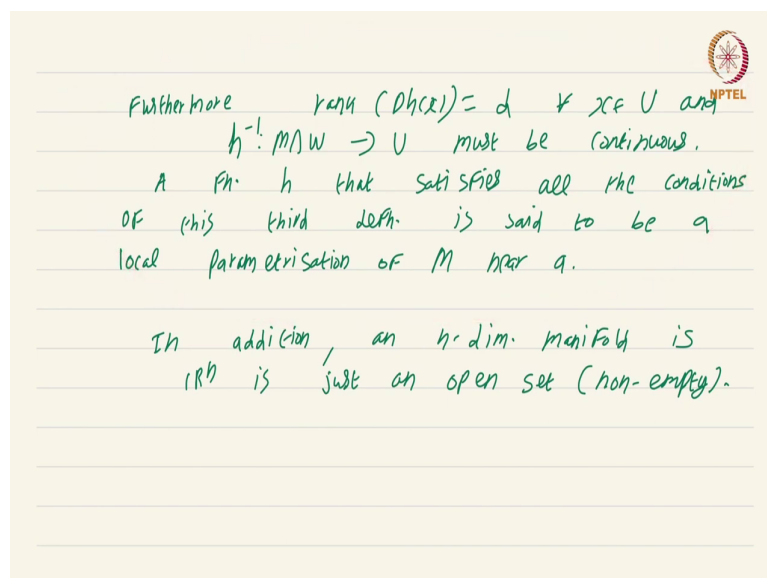 Furthermore rank (Dh(x)) = d ∀ x ∈ U and
h⁻¹: M∩W → U must be continuous.
A Fn. h that satisfies all the conditions
OF this third defn. is said to be a
local parametrisation OF M near a.
In addition, an n-dim. manifold is
ℝⁿ is just an open set (non-empty).
NPTEL